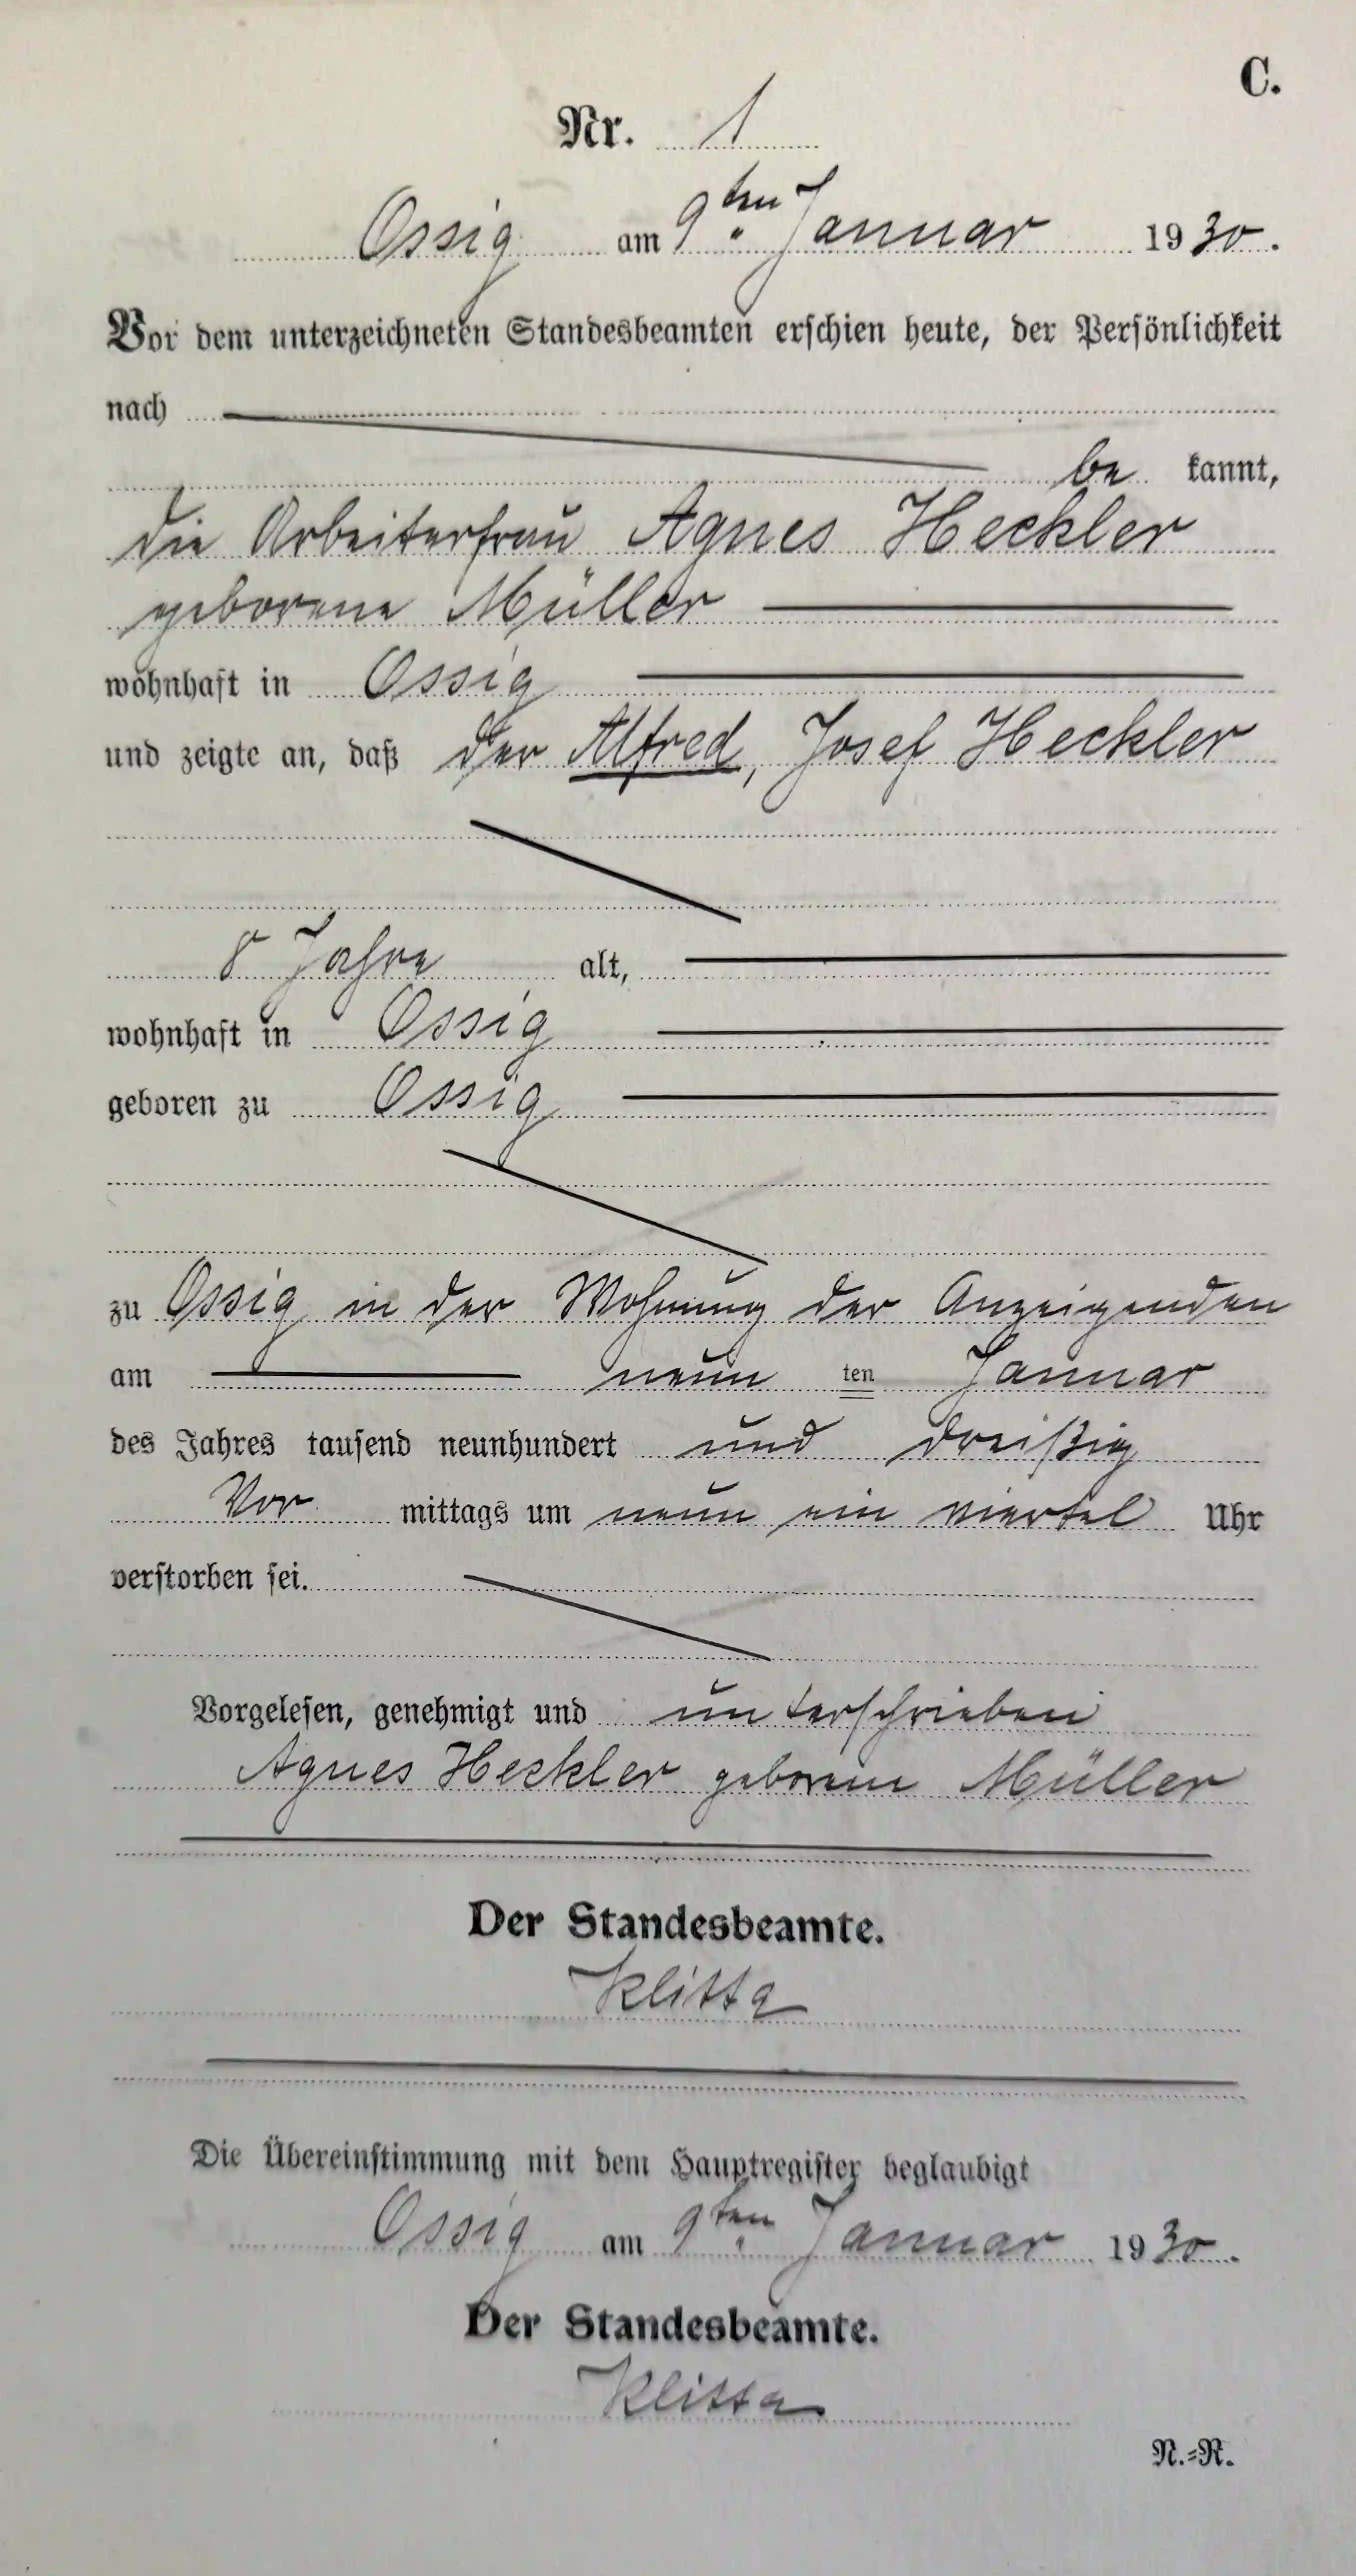 C.
Nr. 1
Ossig am 9ten Januar 1930.
Vor dem unterzeichneten Standesbeamten erschien heute, der Persönlichkeit
nach
be kannt,
die Arbeiterfrau Agnes Heckler
geborene Müller
wohnhaft in Ossig
und zeigte an, daß der Alfred, Josef Heckler
8 Jahre alt,
wohnhaft in Ossig
geboren zu Ossig
zu Ossig in der Wohnung der Anzeigenden
am neun ten Januar
des Jahres tausend neunhundert und dreißig
Vor mittags um neun ein viertel Uhr
verstorben sei.
Vorgelesen, genehmigt und unterschrieben
Agnes Heckler geborene Müller
Der Standesbeamte.
Die Übereinstimmung mit dem Hauptregister beglaubigt
Ossig am 9ten Januar 1930.
Der Standesbeamte.
N.=R.